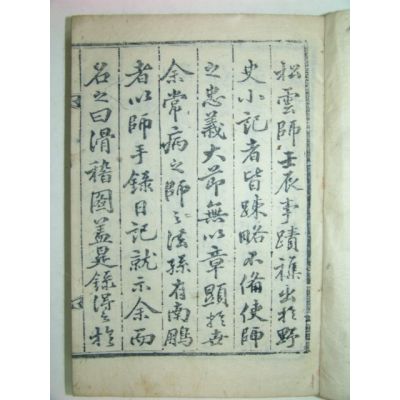 松雲師壬辰事蹟襍出於野
史小記者皆踈略不備使師
之忠義大節無以章顯於世
余常病之師之法孫有南鵬
者以師手錄日記就示余而
名之曰滑稽圖盖是錄得之於